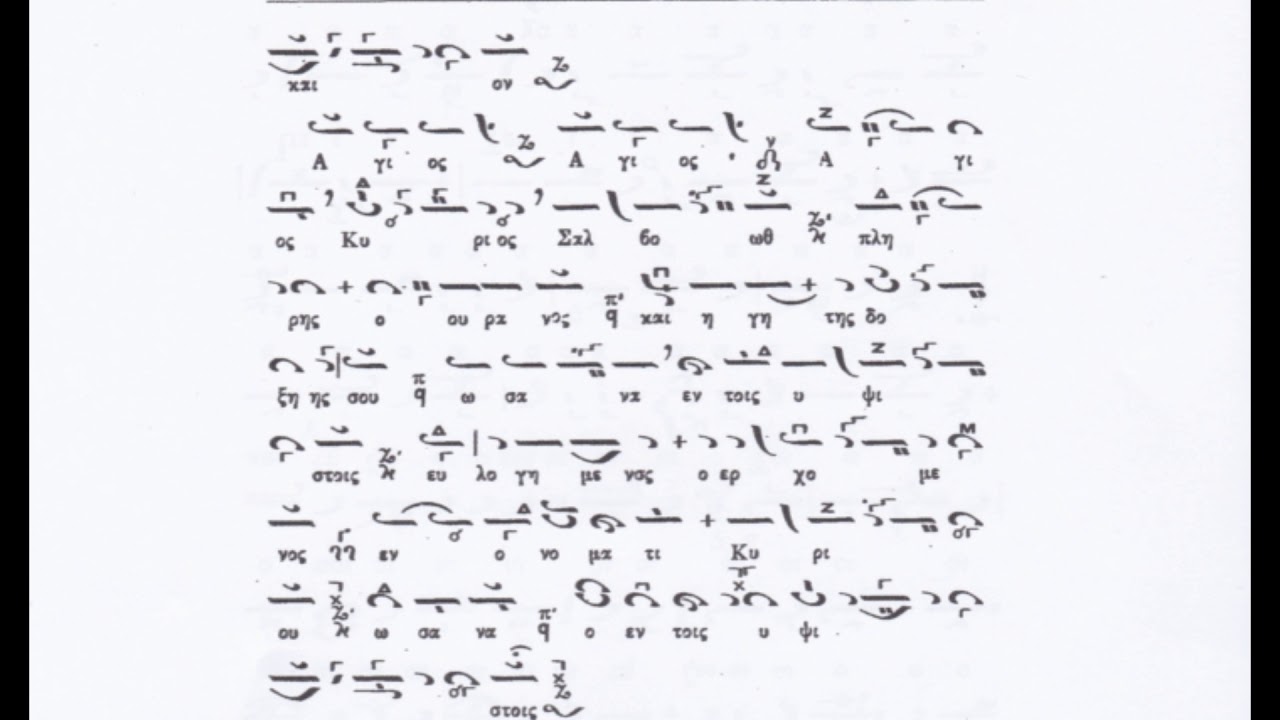 και ον
Α γι ος Α γι ος Α γι
ος Κυ ρι ος Σαβ βα ωθ πλη
ρης ο ου ρα νος π̈ q και η γη της δο
ξη ης σου π q ω σα να εν τοις υ ψι
στοις ευ λο γη με νος ο ερ χο με
νος εν ο νο μα τι Κυ ρι
ου ω σα να π q ο εν τοις υ ψι
στοις